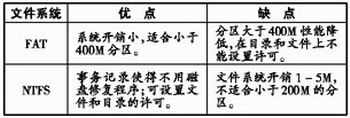 文件系统 优 点 缺 点
FAT
系统开销小,适合小于
400M分区。
分区大于400M性能降
低,在目录和文件上不
能设置许可。
NTFS
事务记录使得不用磁
盘修复程序;可设置文
件和目录的许可。
文件系统开销1-5M,
不适合小于200M的分
区。